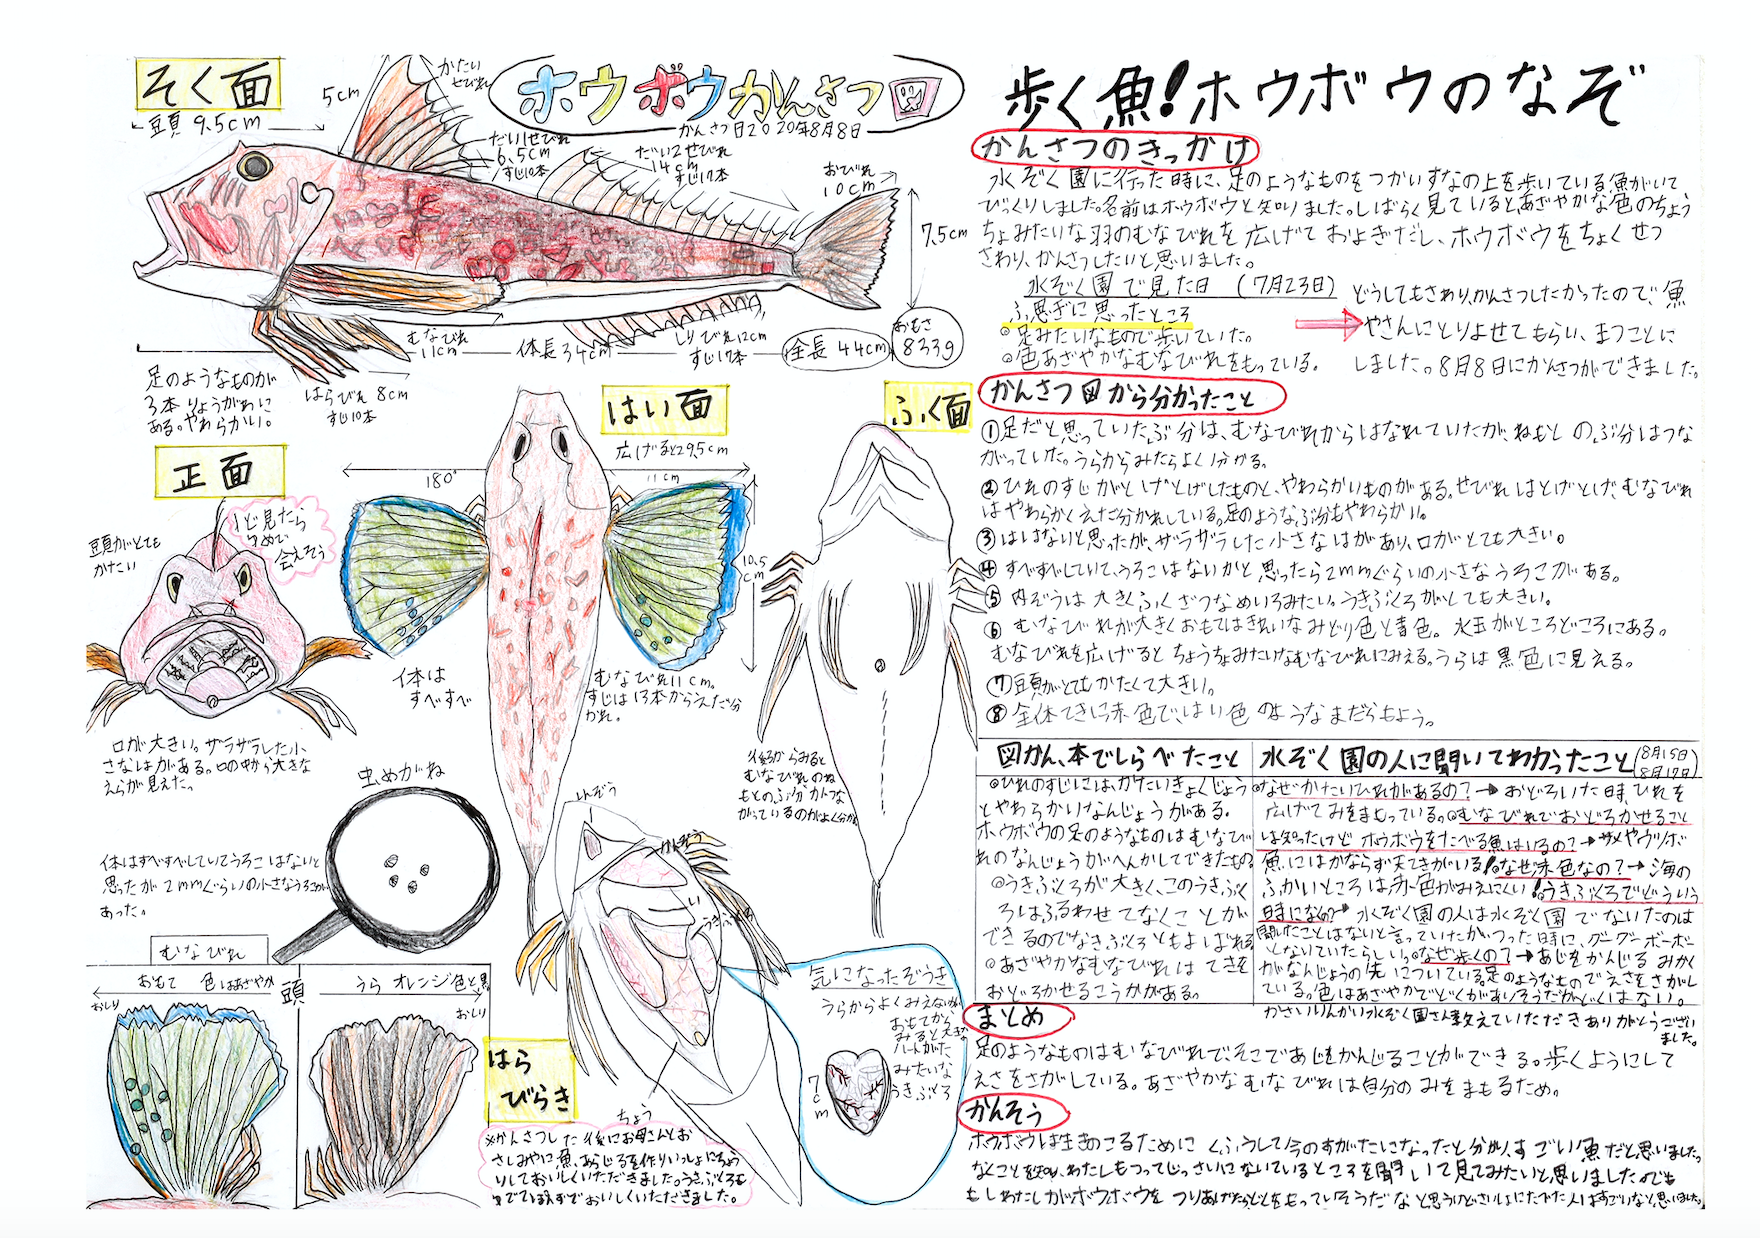 そく面
豆頁 9.5cm
5cm
かたい
せびれ
ホウボウかんさつ図
かんさつ日2020年8月8日
だい1せびれ
6.5cm
すじ10本
だい2せびれ
14cm
すじ17本
おびれ
10cm
7.5cm
むなびれ
11cm
体長34cm
しりびれ12cm
すじ17本
全長44cm
おもさ
833g
足のようなものが
3本りょうがわに
ある。やわらかい。
はらびれ 8cm
すじ10本
正面
頭がとても
かたい
1ど見たら
ゆめで
会えそう
口が大きい。ザラザラした小
さなはがある。口の中から大きな
えらが見えた。
はい面
広げると29.5cm
180°
11cm
10.5
cm
体は
すべすべ
むなびれ11cm。
すじは13本からえだ分
かれ。
ふく面
後ろからみると
むなびれのね
もとのぶ分がつな
がっているのがよく分かる
虫めがね
体はすべすべしていてうろこはないと
思ったが2mmぐらいの小さなうろこが
あった。
むなびれ
おもて 色はあざやか
おしり
頭
うら オレンジ色と黒
おしり
はら
びらき
しんぞう
かんぞう
い
うきぶくろ
ちょう
気になったぞうき
うらからよくみえないが
おもてから
みると大きな
ハートがた
みたいな
うきぶくろ
7cm
※かんさつした後にお母さんとお
さしみやに魚、あらじるを作りいっしょにちょう
りしておいしくいただきました。うきぶくろも
ゆでてポンずでおいしくいただきました。
歩く魚!ホウボウのなぞ
かんさつのきっかけ
水ぞく園に行った時に、足のようなものをつかいすなの上を歩いている魚がいて
びっくりしました。名前はホウボウと知りました。しばらく見ていると、あざやかな色のちょう
ちょみたいな羽のむなびれを広げておよぎだし、ホウボウをちょくせつ
さわり、かんさつしたいと思いました。
水ぞく園で見た日 (7月23日)
ふ思ぎに思ったところ
○足みたいなもので歩いていた。
○色あざやかなむなびれをもっている。
どうしてもさわり、かんさつしたかったので、魚
やさんにとりよせてもらい、まつことに
しました。8月8日にかんさつができました。
かんさつ図から分かったこと
①足だと思っていたぶ分は、むなびれからはなれていたが、ねもとのぶ分はつな
がっていた。うらからみたらよく分かる。
②ひれのすじがとげとげしたものと、やわらかいものがある。せびれはとげとげ、むなびれ
はやわらかくえだ分かれしている。足のようなぶ分もやわらかい。
③はしはないと思ったが、ザラザラした小さなはがあり、口がとても大きい。
④すべすべしていて、うろこはないかと思ったら2mmぐらいの小さなうろこがある。
⑤内ぞうは大きくふくざつなめいろみたい。うきぶくろがとても大きい。
⑥むなびれが大きくおもてはきれいなみどり色と青色。水玉がところどころにある。
むなびれを広げるとちょうちょみたいなむなびれにみえる。うらは黒色に見える。
⑦頭がとてもかたくて大きい。
⑧全体てきに赤色で、はい色のようなまだらもよう。
図かん、本でしらべたこと
○ひれのすじには、かたいきょくじょう
とやわらかいなんじょうがある。
ホウボウの足のようなものはむなび
れのなんじょうがへんかしてできたもの
○うきぶくろが大きく、このうきぶく
ろはふるわせてなくことが
できるのでなきぶくろともよばれる
○あざやかなむなびれはてきを
おどろかせるこうかがある。
水ぞく園の人に聞いてわかったこと(8月15日 8月17日)
○なぜかたいひれがあるの?→おどろいた時、ひれを
広げてみをまもっている。○むなびれでおどろかせること
は知ったけどホウボウをたべる魚はいるの?→サメやウツボ
魚にはかならず天てきがいる!○なぜ赤色なの?→海の
ふかいところは赤色がみえにくい!○うきぶくろでどういう
時になくの?→水ぞく園の人は水ぞく園でないたのは
聞いたことはないと言っていたがつった時に、グーグーボーボー
とないていたらしい。○なぜ歩くの?→あじをかんじるみかく
がなんじょうの先についている。足のようなものでえさをさがし
ている。色はあざやかでどくがありそうだがどくはない。
かさいりんかい水ぞく園さん教えていただきありがとうござい
ました。
まとめ
足のようなものはむなびれで、そこであじをかんじることができる。歩くようにして
えさをさがしている。あざやかなむなびれは自分のみをまもるため。
かんそう
ホウボウは生きのこるためにくふうして今のすがたになったと分かり、すごい魚だと思いました。
なくことを知り、わたしもつってじっさいにないているところを聞いて見てみたいと思いました。でも
もしわたしがホウボウをつりあげたらどくをもっていそうだなと思うけどさいしょにたべた人はすごいなと思いました。